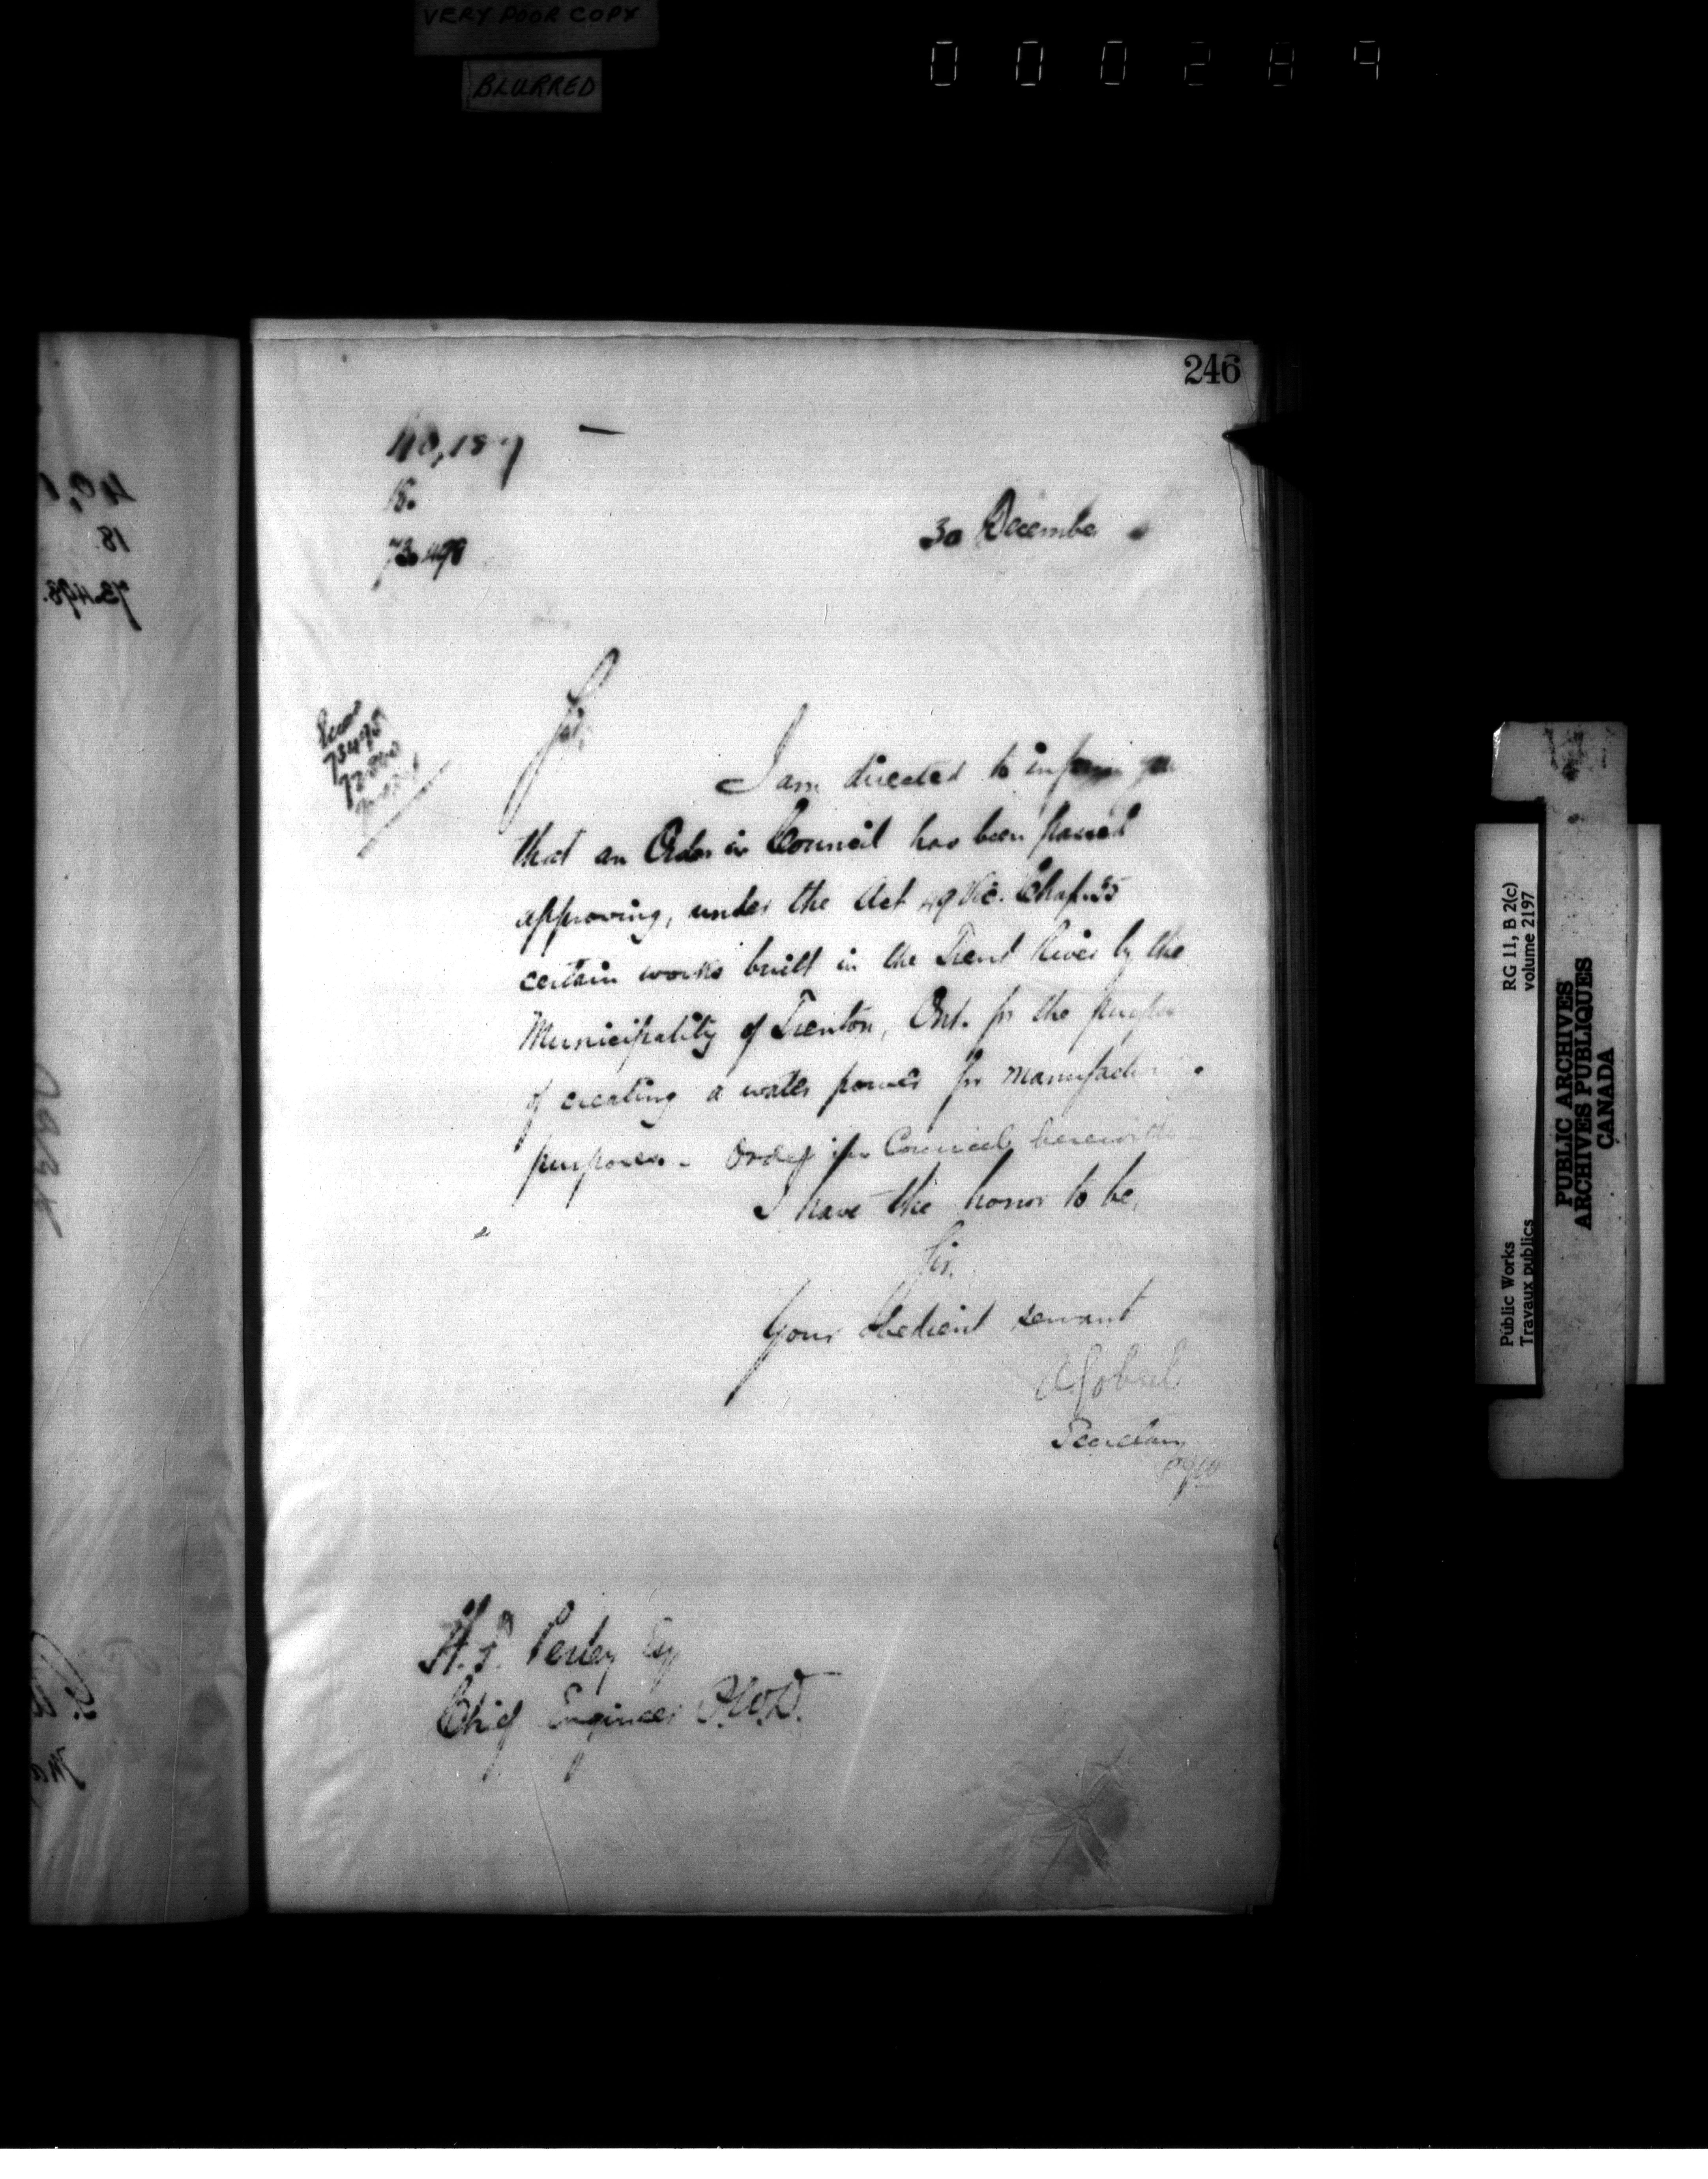 VERY POOR COPY
BLURRED
000289
246
40,187
18.
73.498
30 December
Sir,
I am directed to inform you
that an Order in Council has been passed
approving, under the Act 49 Vic. Chap. 35
certain works built in the Trent River by the
Municipality of Trenton, Ont. for the purpose
of creating a water power for manufacturing
purposes. - Order in Council herewith
I have the honor to be,
Sir,
Your obedient servant
A Gobeil
Secretary
H. F. Perley Esq
Chief Engineer P.W.D.
40,
18
73.498.
RG 11, B 2(c)
volume 2197
Public Works
Travaux publics
PUBLIC ARCHIVES
ARCHIVES PUBLIQUES
CANADA